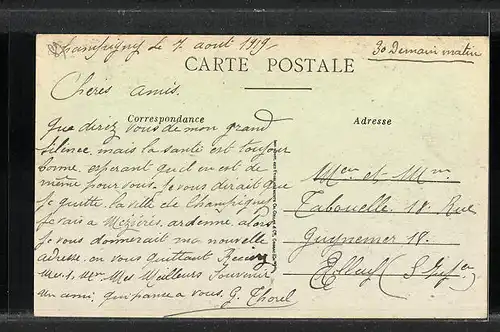 Champigny le 7 aout 1919
30 Demain matin
CARTE POSTALE
Chères amis.
Correspondance
Adresse
que direz vous de mon grand
silence, mais la santé est toujour
bonne, esperant quil en est de
même pour vous. Je vous dirait que
je quitte la ville de Champigny
je vais a Mezières. ardenne. alors
je vous donnerait ma nouvelle
adresse. en vous quittant Recevez
Mes Meilleurs Souvenir
un ami, qui pense a vous, G. Thorel
Mr et Mme
Tabouelle. 18. Rue
Guynemer 18.
Elbeuf (S Infer